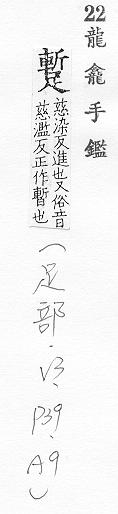 22 龍龕手鑑
蹔
慈染反進也又俗音
慈濫反正作暫也
(足部.V3、P39、A9)